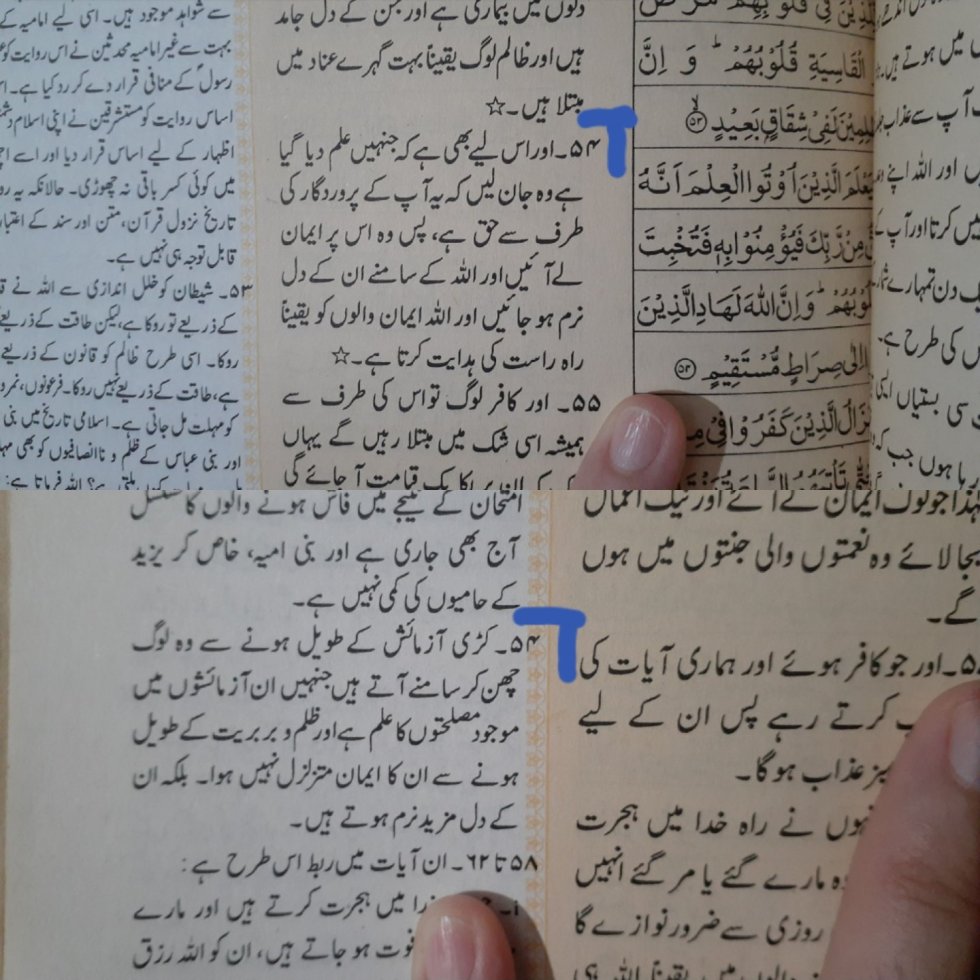 میں ہوتے ہیں۔
آپ سے عذاب
اور اللہ اپنے
نہیں کرتا اور آپ کے
دن تمہارے
کی طرح ہے۔
سی بستیاں ایسی
ہوں جب کہ
فِیْ قُلُوْبِهِمْ مَّرَضٌ
الْقَاسِيَةِ قُلُوْبُهُمْ ؕ وَ اِنَّ
لَفِيْ شِقَاقٍۭ بَعِيْدٍ ۙ﴿۵۳﴾
الَّذِيْنَ اُوْتُوا الْعِلْمَ اَنَّهُ
مِنْ رَّبِّكَ فَيُؤْمِنُوْا بِهٖ فَتُخْبِتَ
قُلُوْبُهُمْ ؕ وَ اِنَّ اللّٰهَ لَهَادِ الَّذِيْنَ
اِلٰى صِرَاطٍ مُّسْتَقِيْمٍ ﴿۵۴﴾
الَّذِيْنَ كَفَرُوْا فِيْ
دلوں میں بیماری ہے اور جن کے دل جامد
ہیں اور ظالم لوگ یقیناً بہت گہرے عناد میں
مبتلا ہیں۔☆
۵۴۔ اور اس لیے بھی ہے کہ جنہیں علم دیا گیا
ہے وہ جان لیں کہ یہ آپ کے پروردگار کی
طرف سے حق ہے، پس وہ اس پر ایمان
لے آئیں اور اللہ کے سامنے ان کے دل
نرم ہو جائیں اور اللہ ایمان والوں کو یقیناً
راہ راست کی ہدایت کرتا ہے۔☆
۵۵۔ اور کافر لوگ تو اس کی طرف سے
ہمیشہ اسی شک میں مبتلا رہیں گے یہاں
کہ ان پر یکایک قیامت آ جائے گی
سے شواہد موجود ہیں۔ اسی لیے امامیہ کے
بہت سے غیر امامیہ محدثین نے اس روایت کو
رسولؐ کے منافی قرار دے کر رد کیا ہے۔
اساس روایت کو مستشرقین نے اپنی اسلام
اظہار کے لیے اساس قرار دیا اور اسے
میں کوئی کسر باقی نہ چھوڑی۔ حالانکہ یہ
تاریخ نزول قرآن، متن اور سند کے اعتبار
قابل توجہ ہی نہیں ہے۔
۵۳۔ شیطان کو خلل اندازی سے اللہ نے
کے ذریعے تو روکا ہے، لیکن طاقت کے ذریعے
روکا۔ اسی طرح ظالم کو قانون کے ذریعے
ہے، طاقت کے ذریعے نہیں روکا۔ فرعونوں،
کو مہلت مل جاتی ہے۔ اسلامی تاریخ میں بنی
اور بنی عباس کے ظلم و ناانصافیوں کو بھی
اللہ فرماتا ہے:
لہذا جو لوگ ایمان لے آئے اور نیک اعمال
بجا لائے وہ نعمتوں والی جنتوں میں ہوں
گے۔
اور جو کافر ہوئے اور ہماری آیات کی
کرتے رہے پس ان کے لیے
عذاب ہو گا۔
نے راہ خدا میں ہجرت
مارے گئے یا مر گئے انہیں
روزی سے ضرور نوازے گا
یقیناً اللہ ہی
امتحان کے نتیجے میں فاش ہونے والوں کا تسلسل
آج بھی جاری ہے اور بنی امیہ، خاص کر یزید
کے حامیوں کی کمی نہیں ہے۔
۵۴۔ کڑی آزمائش کے طویل ہونے سے وہ لوگ
چھن کر سامنے آتے ہیں جنہیں ان آزمائشوں میں
موجود مصلحتوں کا علم ہے اور ظلم و بربریت کے طویل
ہونے سے ان کا ایمان متزلزل نہیں ہوا۔ بلکہ ان
کے دل مزید نرم ہوتے ہیں۔
۵۸ تا ۶۲۔ ان آیات میں ربط اس طرح ہے:
میں ہجرت کرتے ہیں اور مارے
فوت ہو جاتے ہیں، ان کو اللہ رزق